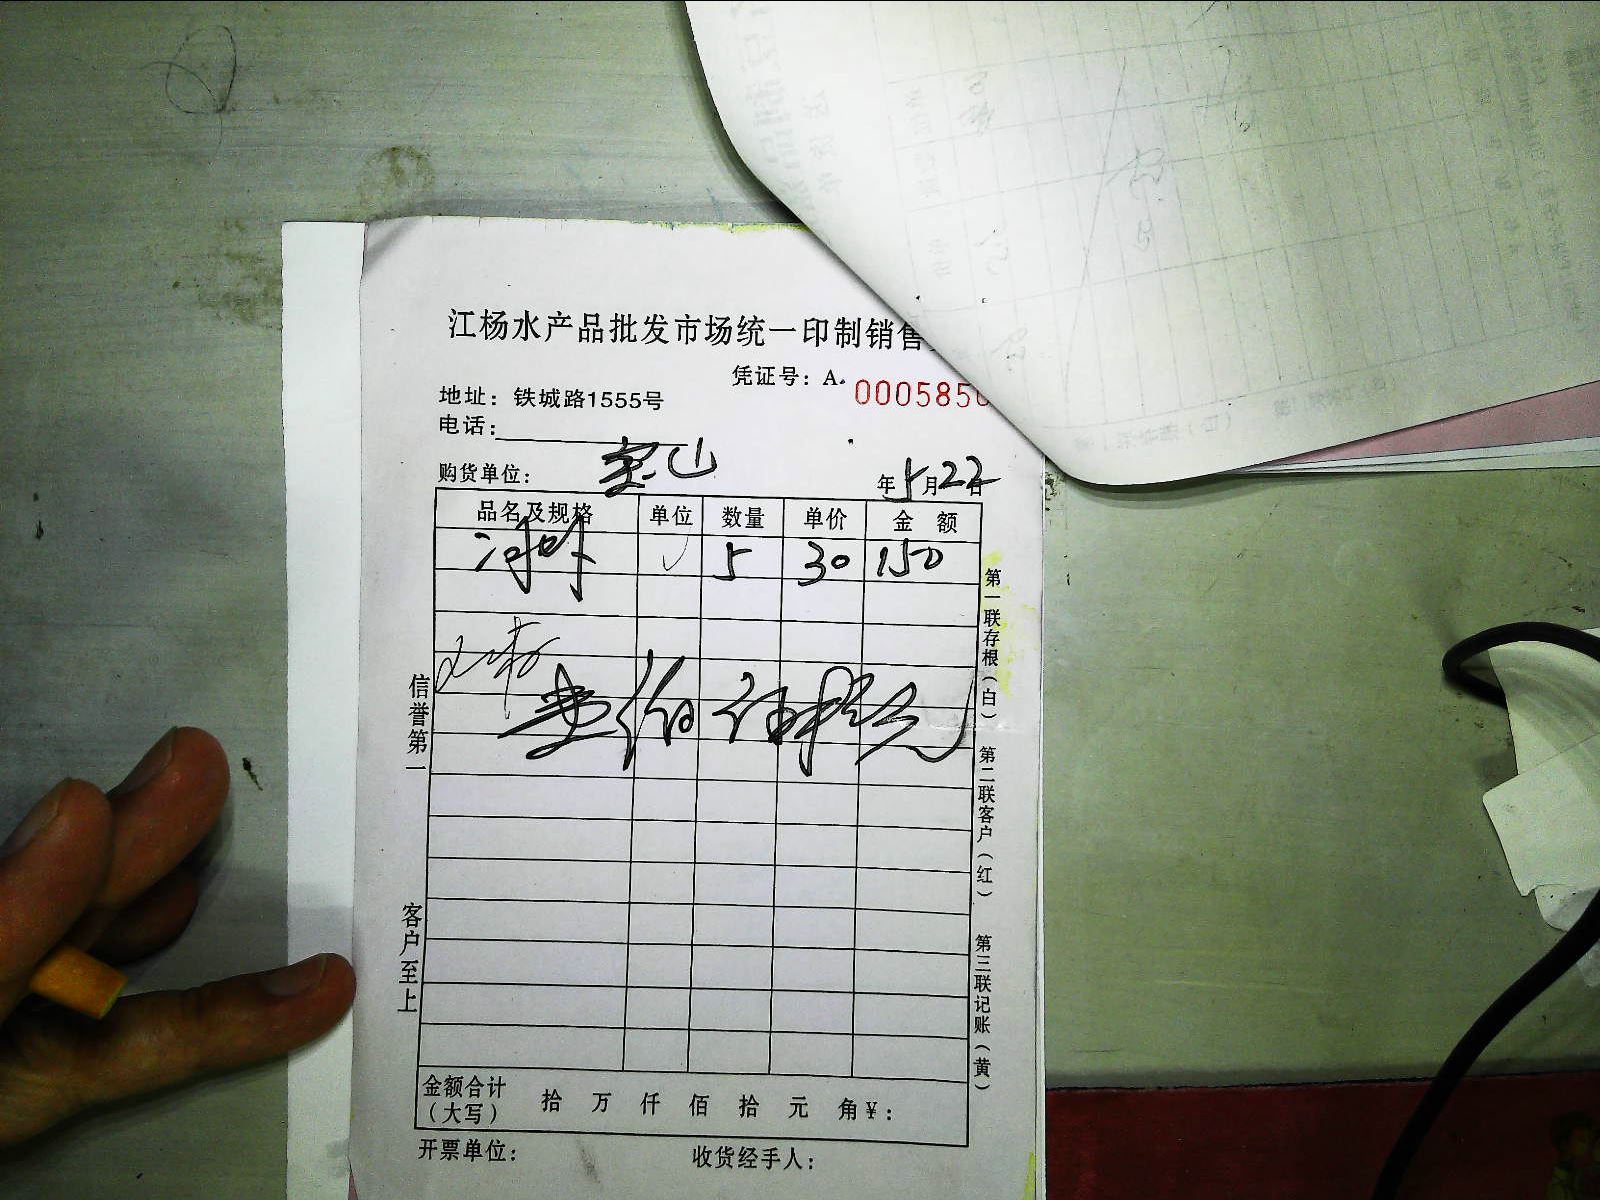 江杨水产品批发市场统一印制销售
凭证号：A. 000585
地址：铁城路1555号
电话：
购货单位： 宝山 年5月22日
品名及规格 单位 数量 单价 金额
河虾 5 30 150
壹佰伍拾元
信誉第一
客户至上
第一联存根（白）
第二联客户（红）
第三联记账（黄）
金额合计（大写） 拾 万 仟 佰 拾 元 角 ¥：
开票单位： 收货经手人：